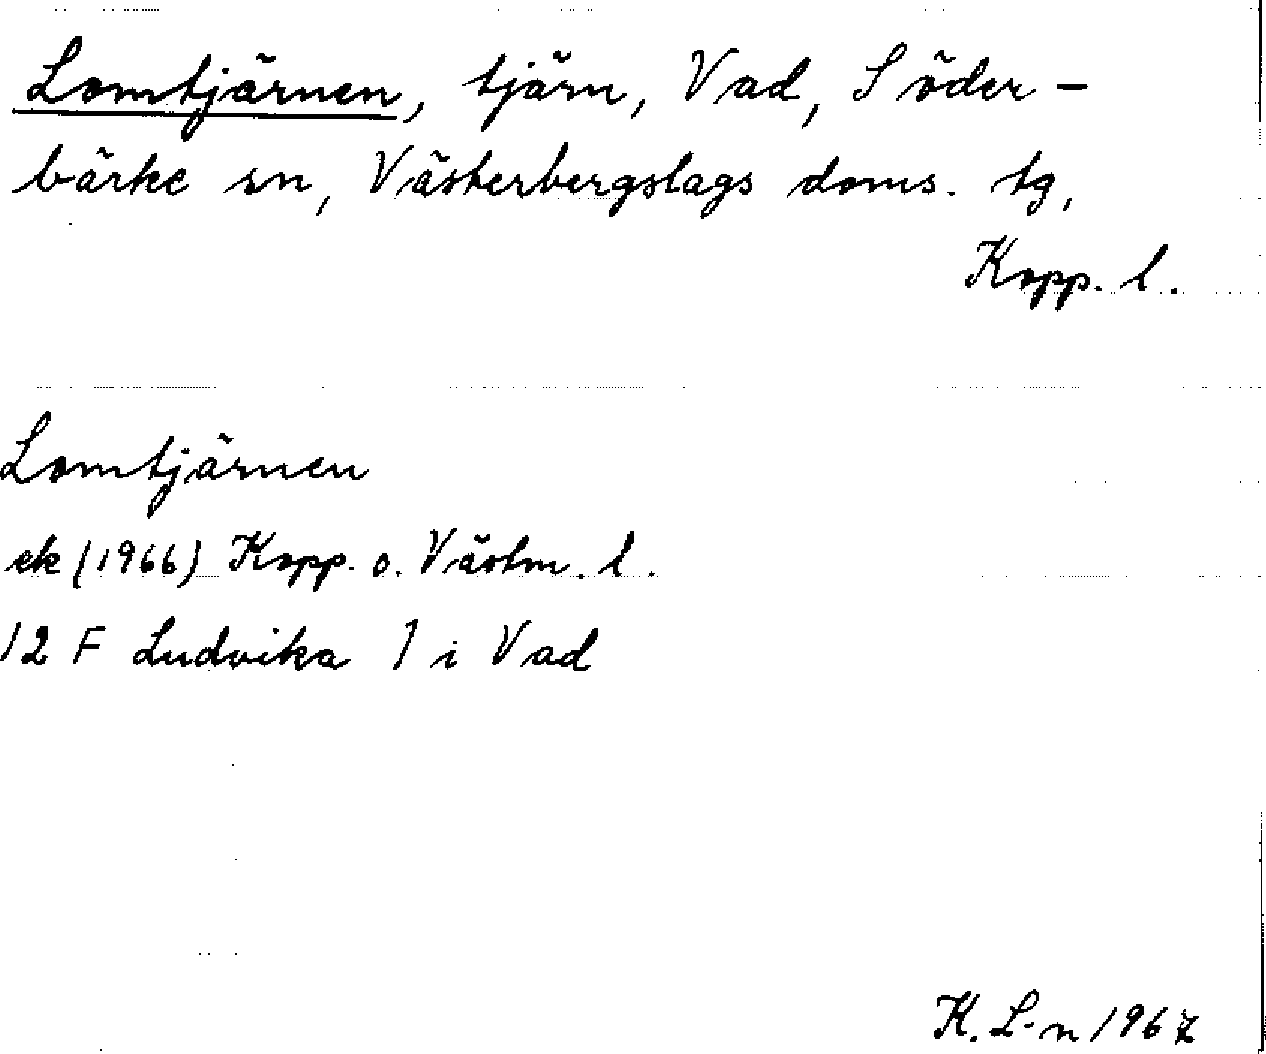 Lomtjärnen, tjärn, Vad, Söder-
bärke sn, Västerbergslags doms. tg,
Kopp. l.
Lomtjärnen
ek (1966) Kopp. o. Västm. l.
12 F Ludvika 1 i Vad
K. L-n 1967